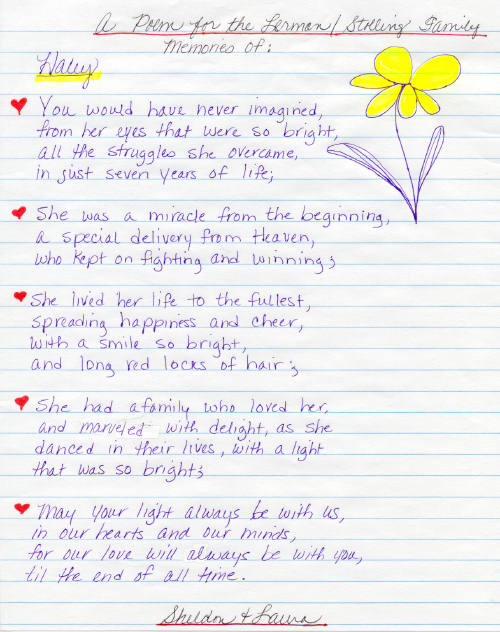 A Poem for the Lerman/Stolling Family
Memories of:
Haley
You would have never imagined,
from her eyes that were so bright,
all the struggles she overcame,
in just seven years of life;
She was a miracle from the beginning,
a special delivery from Heaven,
who kept on fighting and winning;
She lived her life to the fullest,
spreading happiness and cheer,
with a smile so bright,
and long red locks of hair;
She had a family who loved her,
and marveled with delight, as she
danced in their lives, with a light
that was so bright;
May your light always be with us,
in our hearts and our minds,
for our love will always be with you,
til the end of all time.
Sheldon & Laura